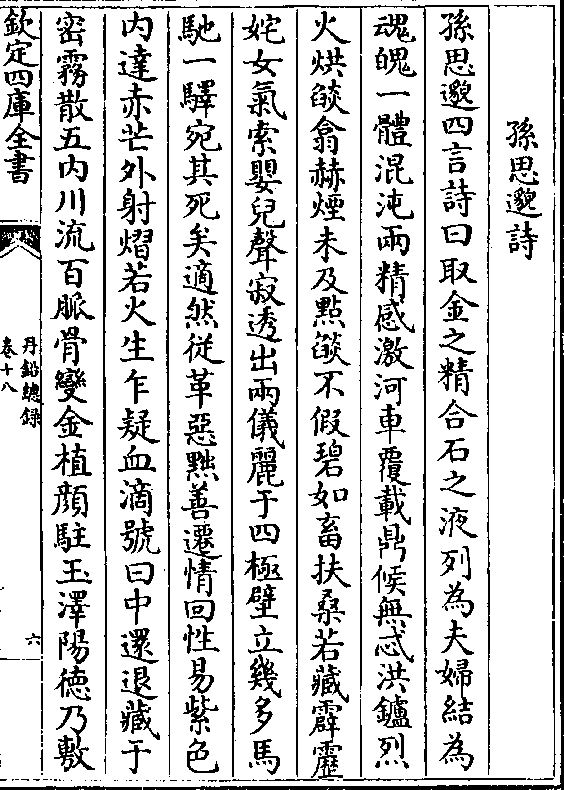 孫思邈詩
孫思邈四言詩曰取金之精合石之液列為夫婦結為
魂魄一體混沌兩精感激河車覆載鼎候無忒洪鑪烈
火烘燄翕赫煙未及黔燄不假碧如畜扶桑若藏霹靂
姹女氣索嬰兒聲寂透出兩儀麗于四極壁立幾多馬
馳一驛宛其死矣適然從革惡黜善遷情回性易紫色
内達赤芒外射熠若火生乍疑血滴號曰中還退藏于
密霧散五内川流百脈骨變金植顔駐玉澤陽德乃敷
欽定四庫全書
丹鉛總錄
卷十八
六